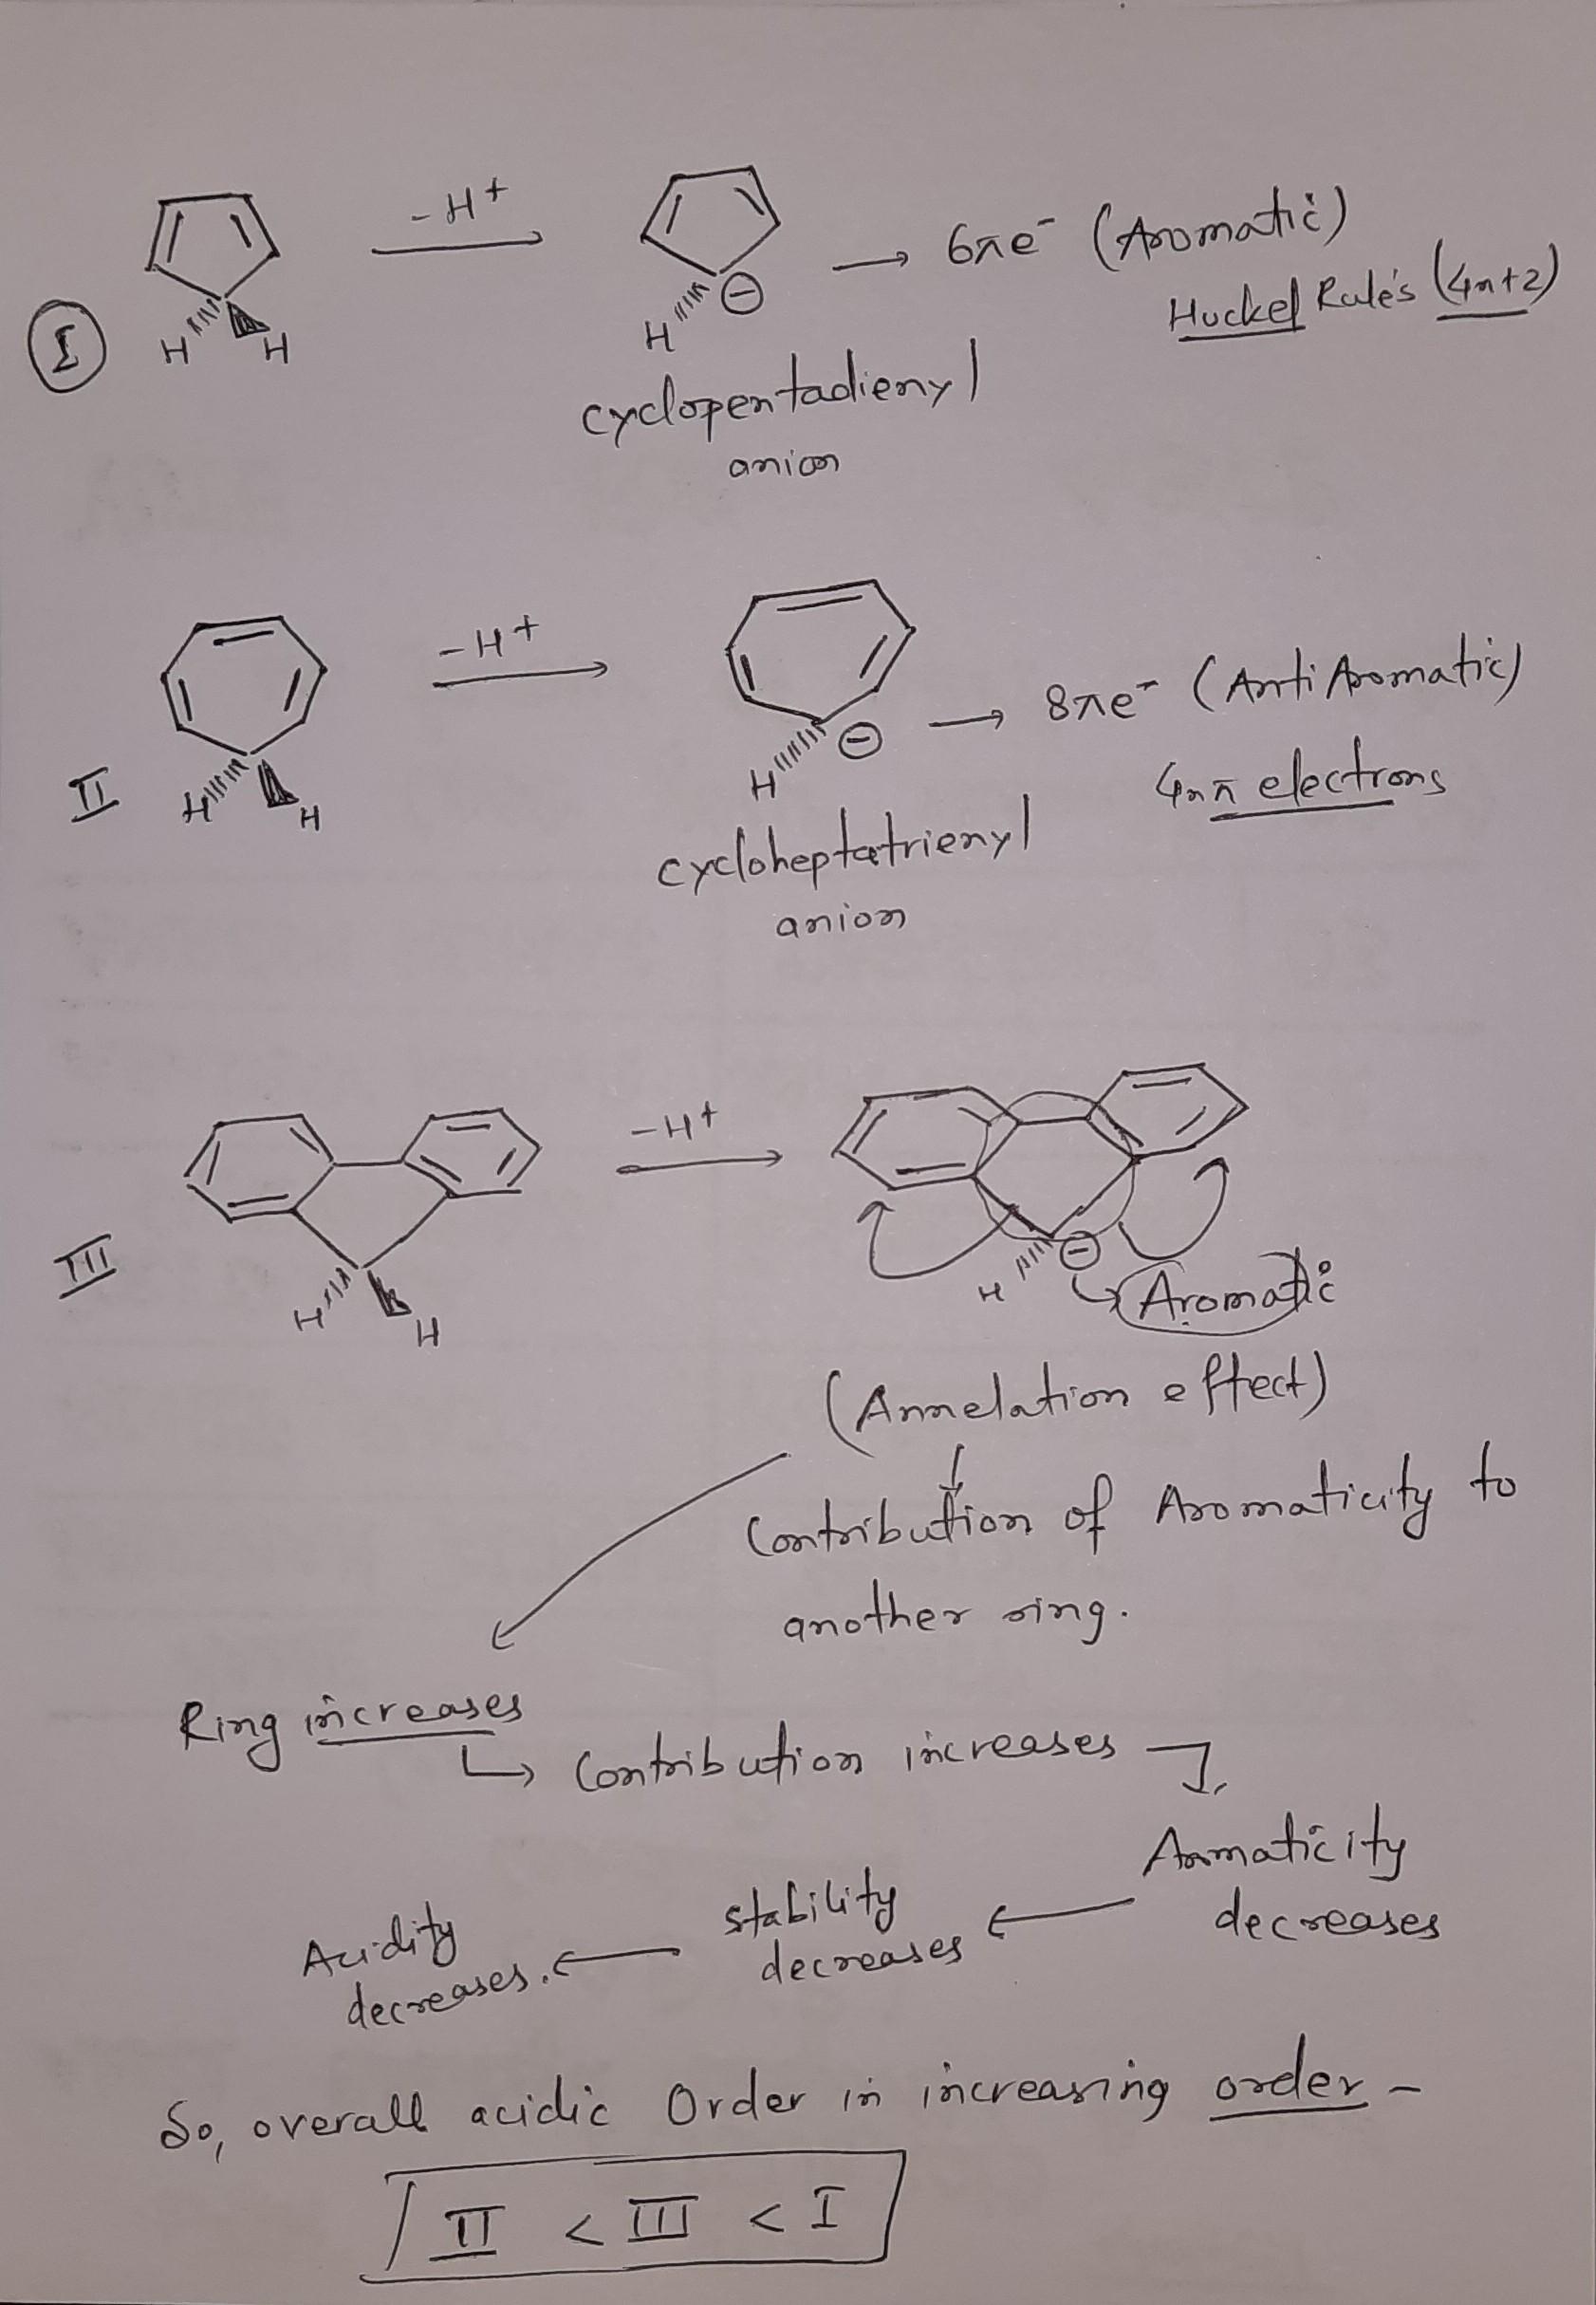 -H+
6πe⁻ (Aromatic)
Huckel Rule's (4n+2)
I
H H
H ⊖
cyclopentadienyl
anion
-H+
8πe⁻ (Anti Aromatic)
4nπ electrons
II
H H
H ⊖
cycloheptatrienyl
anion
-H+
III
H H
H ⊖
Aromatic
(Annelation effect)
Contribution of Aromaticity to
another ring.
Ring increases
Contribution increases
Aromaticity
decreases
stability
decreases
Acidity
decreases.
So, overall acidic Order in increasing order -
II < III < I